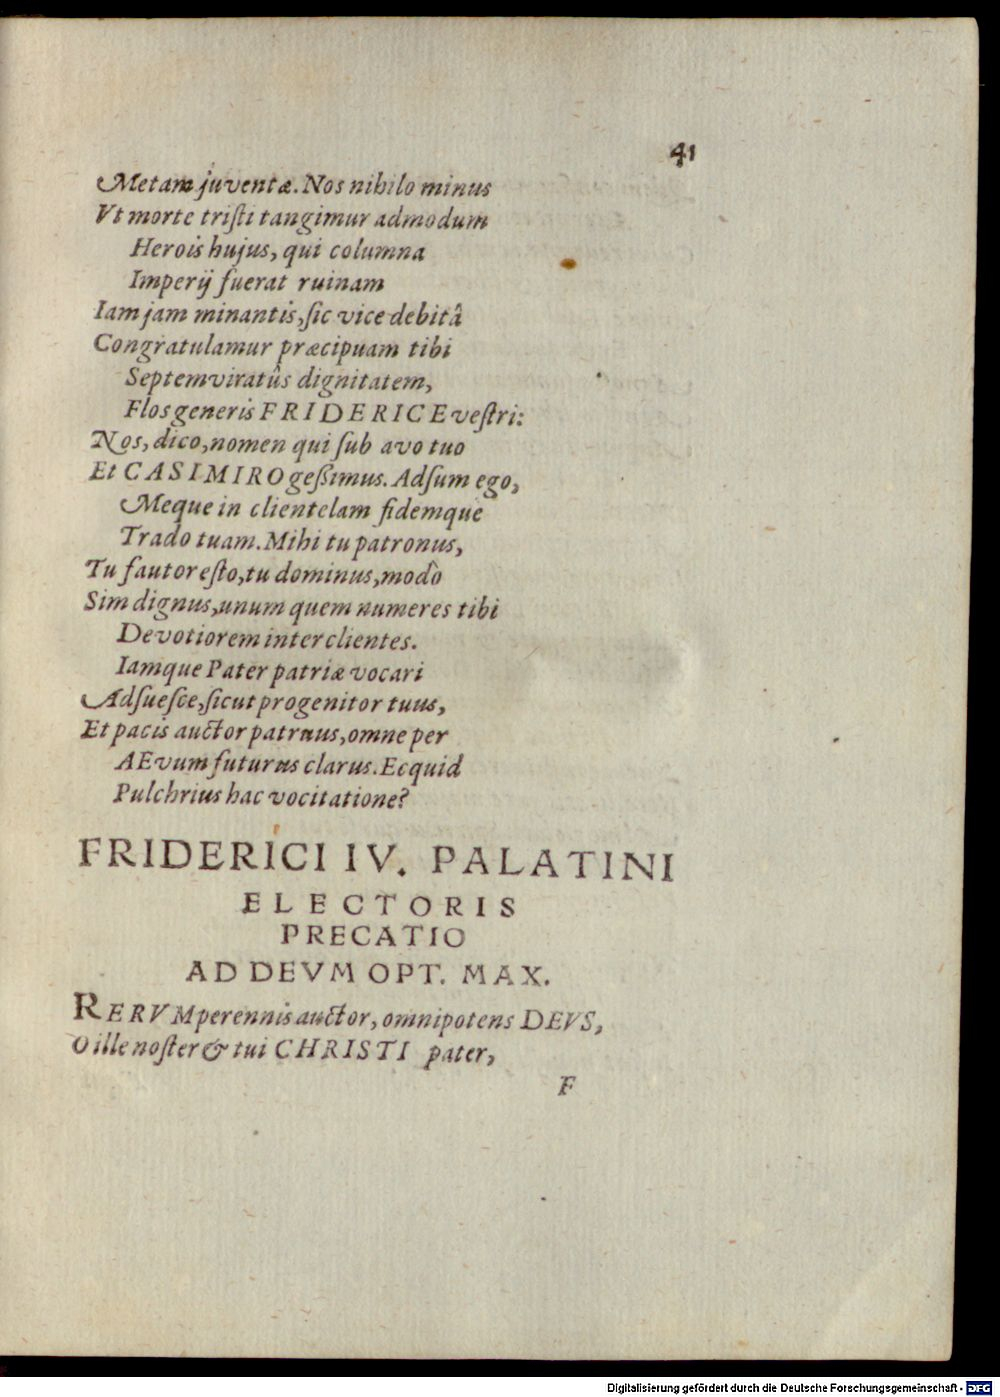 41
Metam juventæ. Nos nihilo minus
Vt morte tristi tangimur admodum
Herois hujus, qui columna
Imperij fuerat ruinam
Iam jam minantis, sic vice debitâ
Congratulamur præcipuam tibi
Septemviratûs dignitatem,
Flos generis FRIDERICE vestri:
Nos, dico, nomen qui sub avo tuo
Et CASIMIRO geßimus. Adsum ego,
Meque in clientelam fidemque
Trado tuam. Mihi tu patronus,
Tu fautor esto, tu dominus, modò
Sim dignus, unum quem numeres tibi
Devotiorem inter clientes.
Iamque Pater patriæ vocari
Adsuesce, sicut progenitor tuus,
Et pacis auctor patruus, omne per
AEvum futurus clarus. Ecquid
Pulchrius hac vocitatione?
FRIDERICI IV. PALATINI
ELECTORIS
PRECATIO
AD DEVM OPT. MAX.
RERVM perennis auctor, omnipotens DEVS,
O ille noster & tui CHRISTI pater,
F
Digitalisierung gefördert durch die Deutsche Forschungsgemeinschaft - DFG